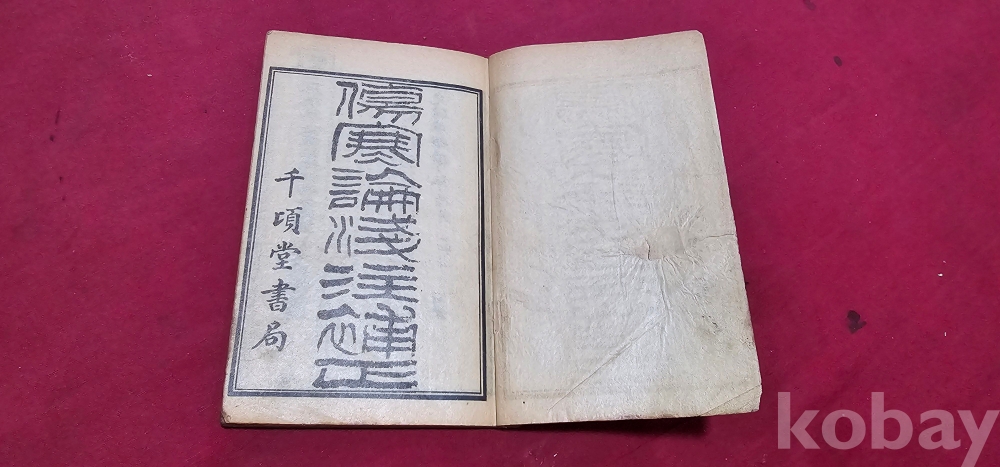 傷寒論淺注補正
千頃堂書局
kobay